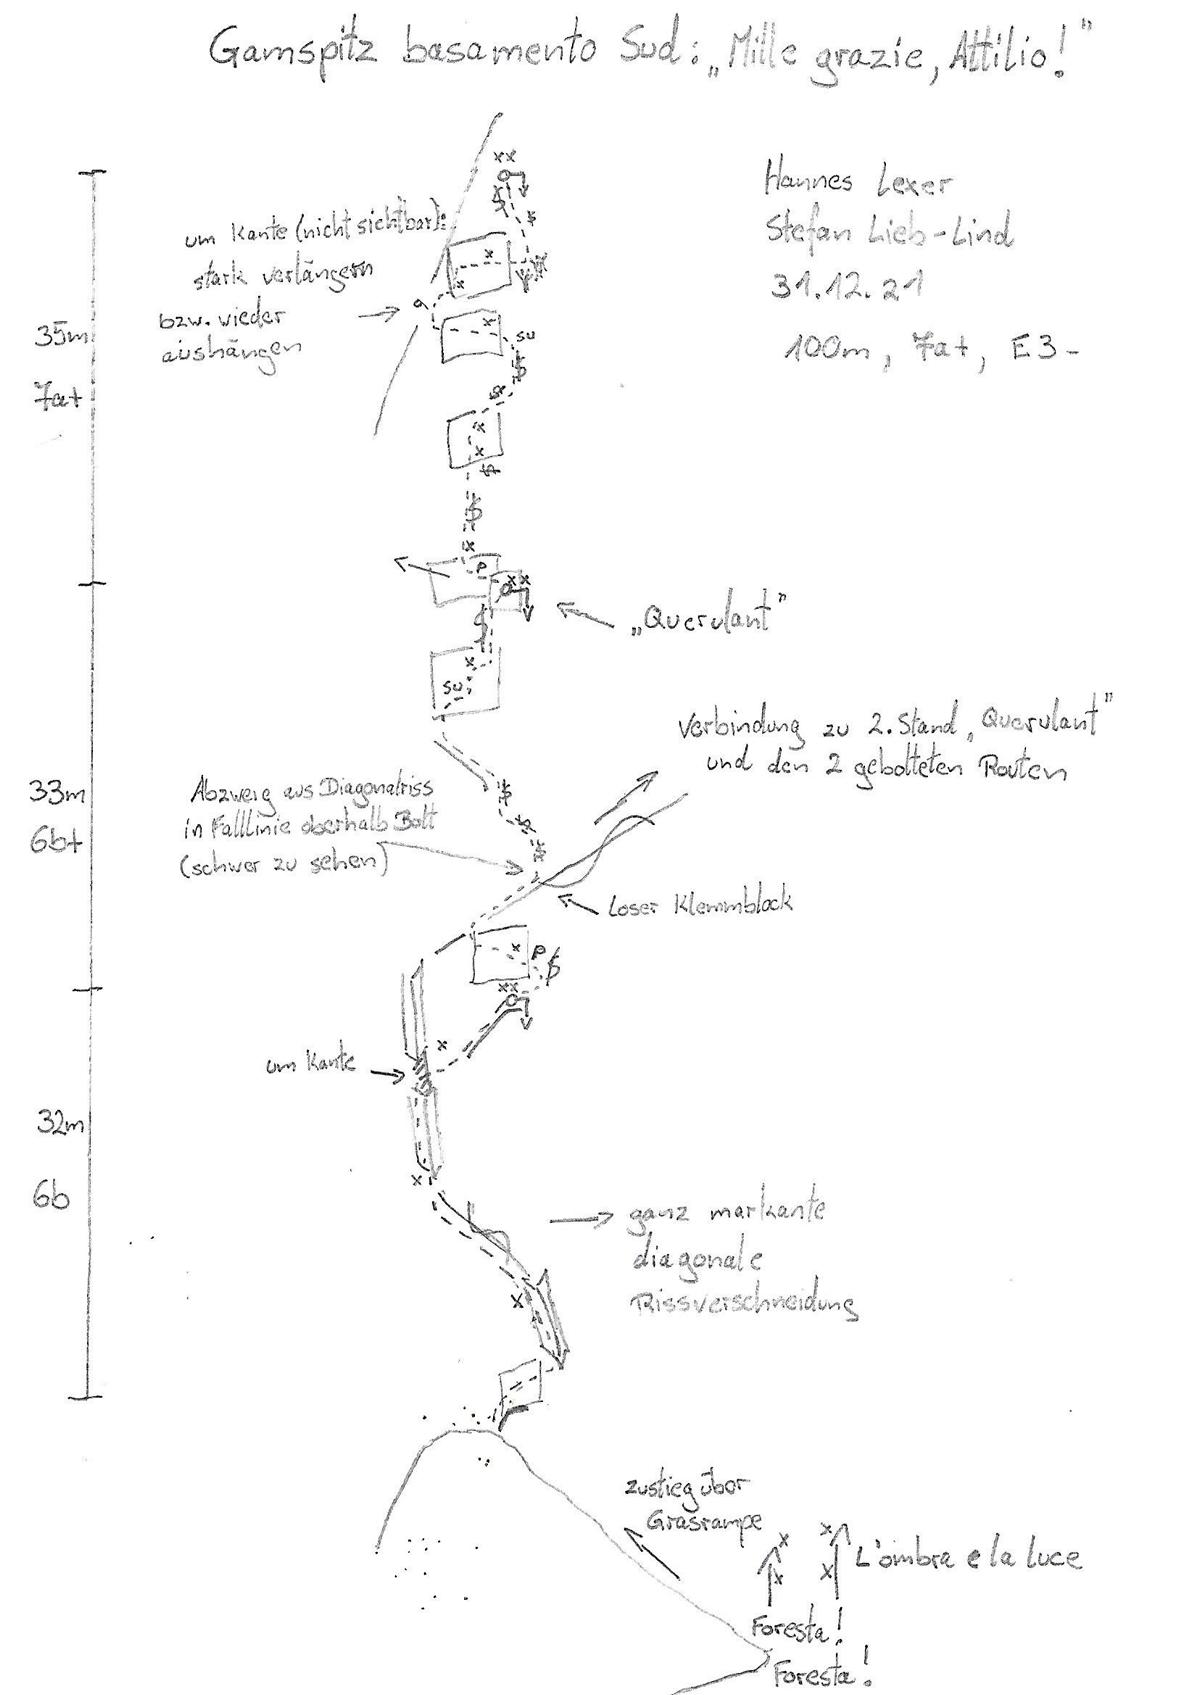 Gamspitz basamento Sud: „Mille grazie, Attilio!"
Hannes Lexer
Stefan Lieb-Lind
31.12.21
100m, 7a+, E3-
um Kante (nicht sichtbar):
stark verlängern
bzw. wieder
aushängen
35m
7a+
su
P
„Querulant"
su
Verbindung zu 2. Stand „Querulant"
und den 2 gebolteten Routen
33m
6b+
Abzweig aus Diagonalriss
in Falllinie oberhalb Bolt
(schwer zu sehen)
Loser Klemmblock
P
um Kante
32m
6b
ganz markante
diagonale
Rissverschneidung
Zustieg über
Grasrampe
L'ombra e la luce
Foresta!
Foresta!